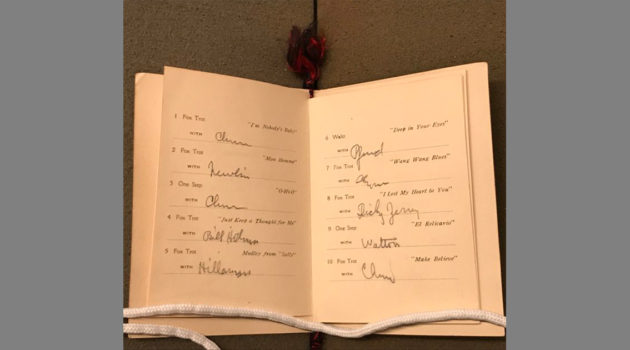 1 Fox Trot "I'm Nobody's Baby"
WITH Chinn
2 Fox Trot "Mon Homme"
WITH Newlin
3 One Step "O-Hi-O"
WITH Chinn
4 Fox Trot "Just Keep a Thought for Me"
WITH Bill
5 Fox Trot Medley from "Sally"
WITH
6 Waltz "Deep in Your Eyes"
WITH
7 Fox Trot "Wang Wang Blues"
WITH
8 Fox Trot "I Lost My Heart to You"
WITH Dick
9 One Step "El Relicario"
WITH Watton
10 Fox Trot "Make Believe"
WITH Chinn